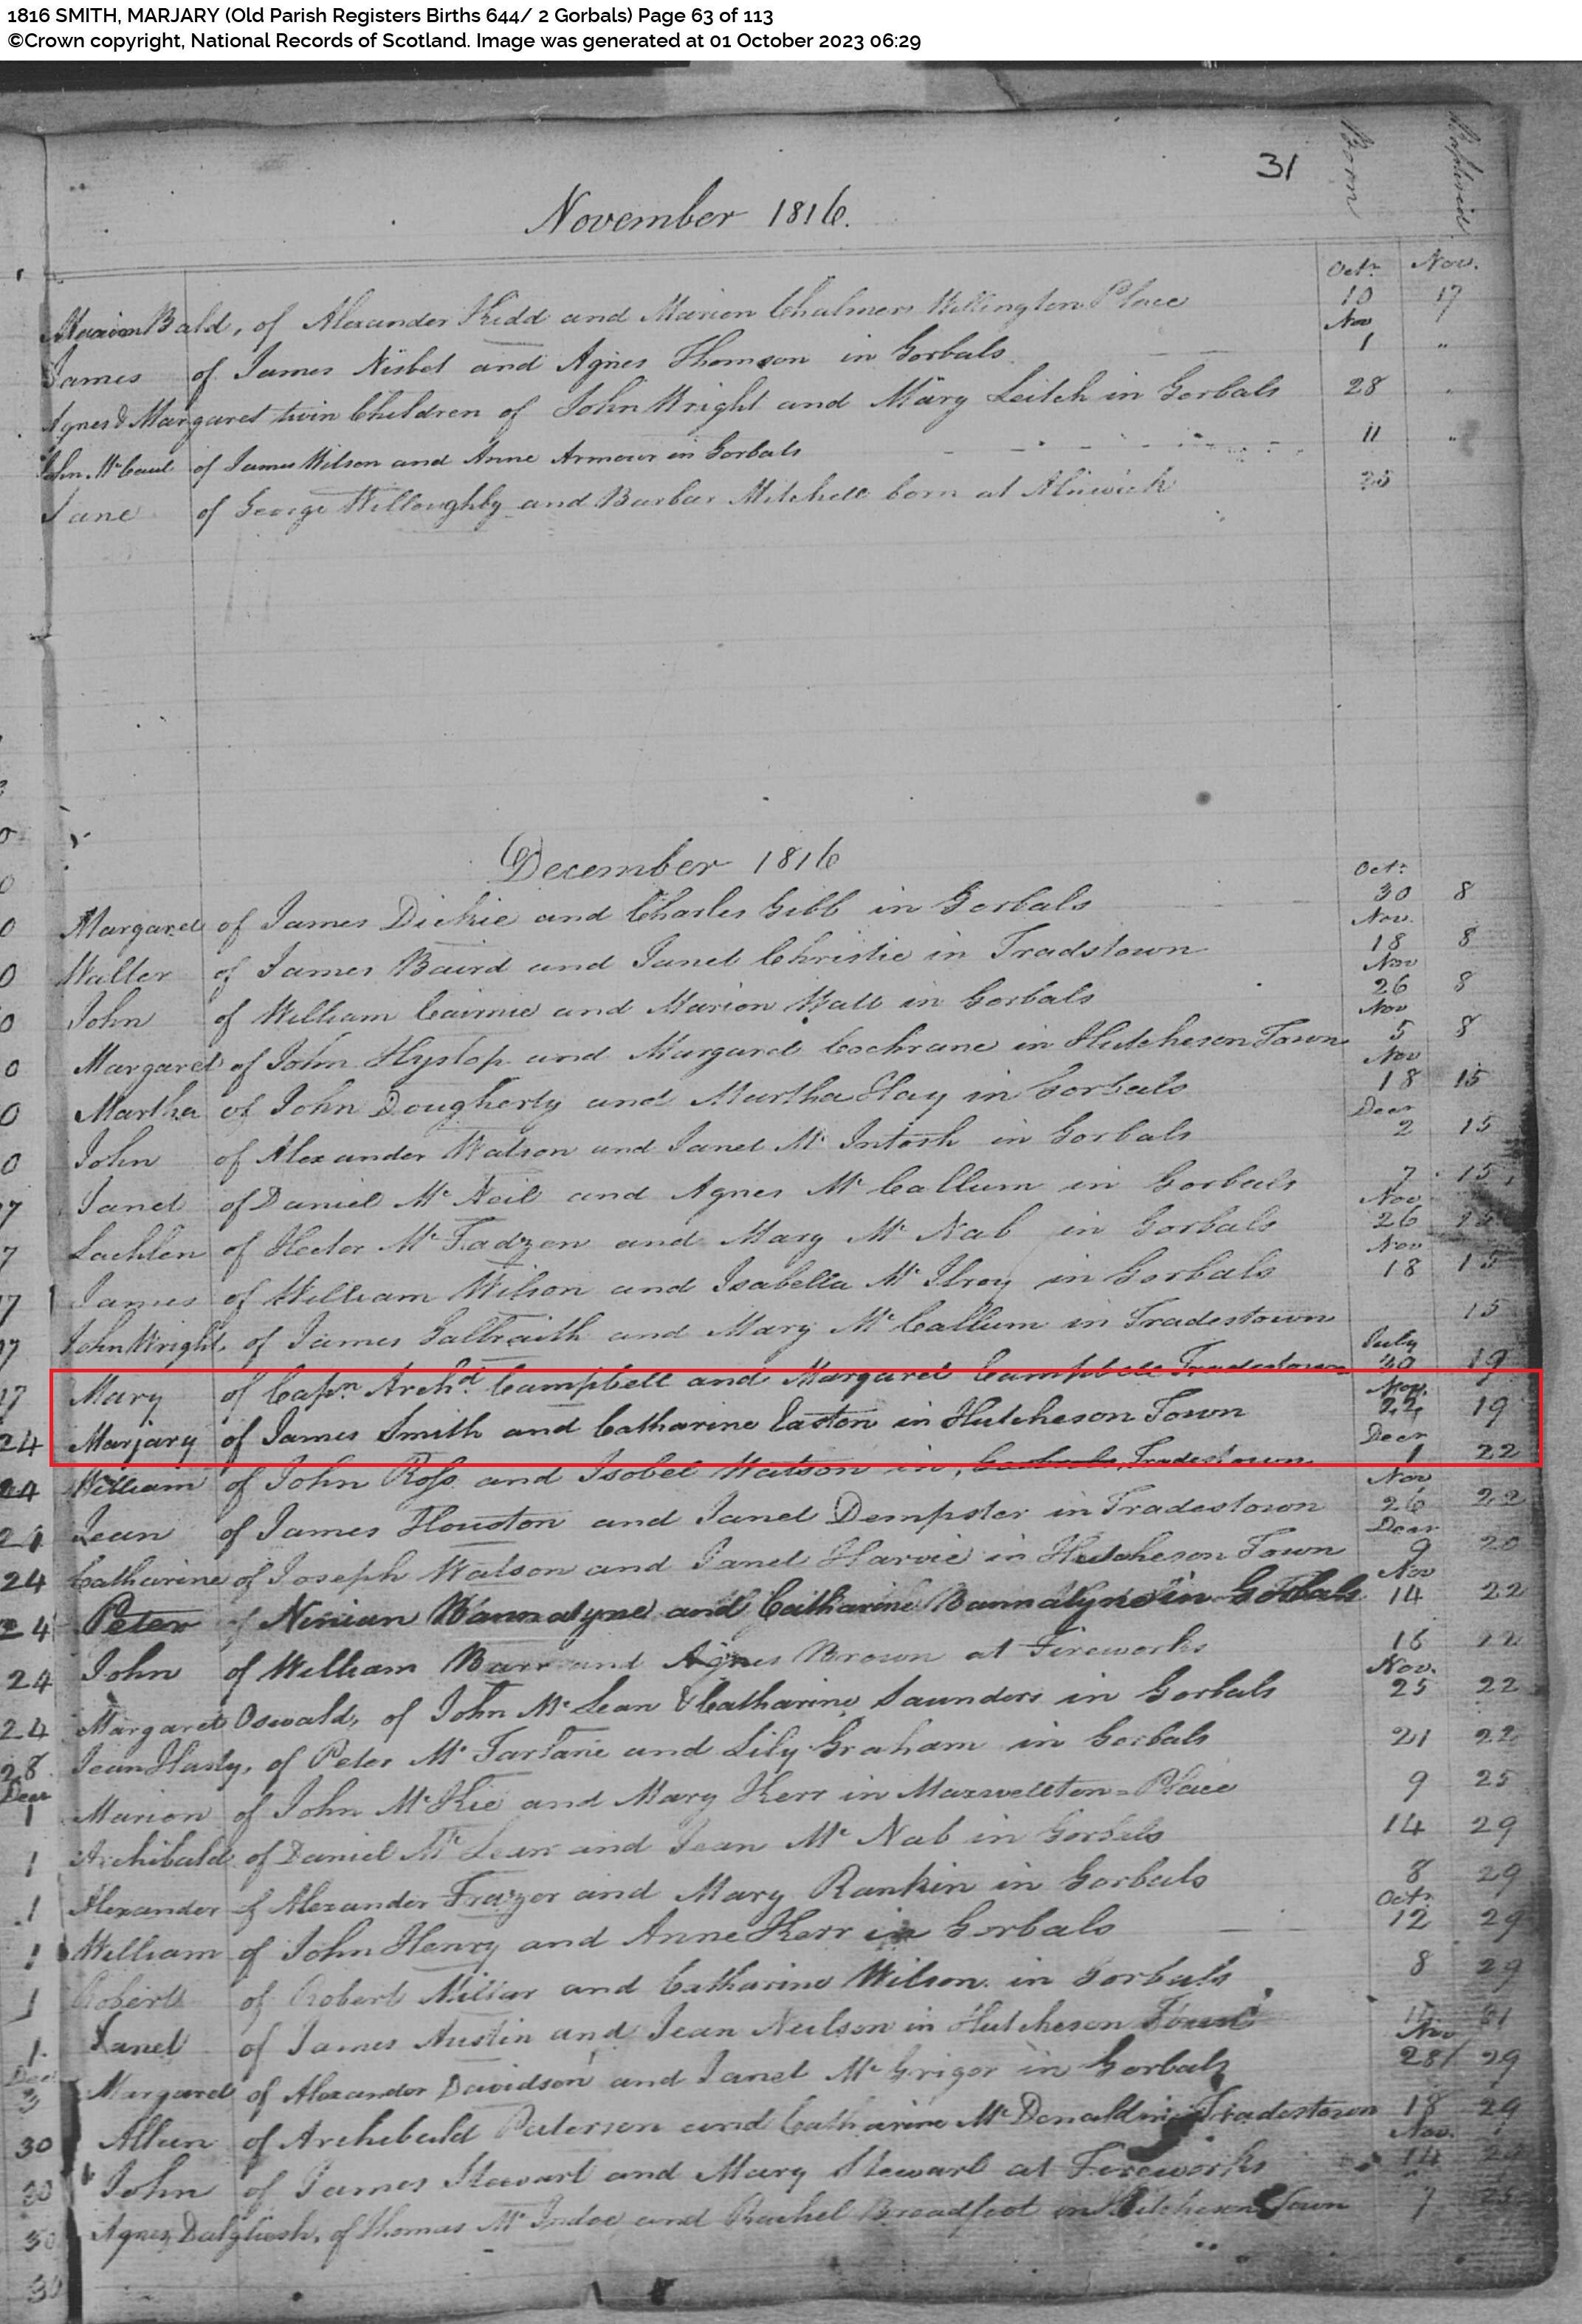 1816 SMITH, MARJARY (Old Parish Registers Births 644/ 2 Gorbals) Page 63 of 113
©Crown copyright, National Records of Scotland. Image was generated at 01 October 2023 06:29
31
Born
Baptized
November 1816.
Octr Nov.
Marion Bald, of Alexander Kidd and Marion Chalmers Wellington Place 10 17
Nov
James of James Nisbet and Agnes Thomson in Gorbals 1 "
Agnes & Margaret twin Children of John Wright and Mary Leitch in Gorbals 28 "
John McCaul of James Wilson and Anne Armour in Gorbals 11 "
Jane of George Willoughby and Barbar Mitchell born at Alnwick 25
December 1816
Octr
Margaret of James Dickie and Charles Gibb in Gorbals 30 8
Nov.
Walter of James Baird and Janet Christie in Tradstown 18 8
Nov
John of William Cairnie and Marion Watt in Gorbals 26 8
Nov
Margaret of John Hyslop and Margaret Cochrane in Hutcheson Town 5 8
Nov
Martha of John Dougherty and Martha Hay in Gorbals 18 15
Decr
John of Alexander Watson and Janet Mc Intosh in Gorbals 2 15
Janet of Daniel Mc Neil and Agnes Mc Callum in Gorbals 7 15
Nov
Lachlen of Hector Mc Fadzen and Mary Mc Nab in Gorbals 26 15
Nov
James of William Wilson and Isabella Mc Ilroy in Gorbals 18 15
John Wright, of James Galbraith and Mary Mc Callum in Tradestown 15
July
17 Mary of Capn Archd Campbell and Margaret Campbell Tradestown 30 19
Nov.
24 Marjary of James Smith and Catharine Easton in Hutcheson Town 22 19
Decr
24 William of John Ross and Isobel Watson in Gorbals Tradestown 1 22
Nov
24 Jean of James Houston and Janet Dempster in Tradestown 26 22
Decr
24 Catharine of Joseph Watson and Janet Harvie in Hutcheson Town 9 20
Nov
24 Peter of Ninian Bannatyne and Catharine Bannatyne in Gorbals 14 22
24 John of William Barr and Agnes Brown at Fireworks 16 22
Nov.
24 Margaret Oswald, of John Mc Lean & Catharine Saunders in Gorbals 25 22
28 Jean Hasty, of Peter Mc Farlane and Lily Graham in Gorbals 21 22
Decr
1 Marion of John Mc Kie and Mary Kerr in Maxwellton=Place 9 25
1 Archibald of Daniel Mc Lean and Jean Mc Nab in Gorbals 14 29
1 Alexander of Alexander Frazer and Mary Rankin in Gorbals 8 29
Octr
1 William of John Henry and Anne Kerr in Gorbals 12 29
1 Robert of Robert Millar and Catharine Wilson in Gorbals 8 29
1 Janet of James Austin and Jean Neilson in Hutcheson Town
Nov
3 Margaret of Alexander Davidson and Janet Mc Grigor in Gorbals 28 29
30 Allan of Archibald Paterson and Catharine Mc Donald in Tradestown 18 29
Nov.
30 John of James Stewart and Mary Stewart at Fireworks 14
30 Agnes Dalgliesh, of Thomas Mc Indoe and Rachel Broadfoot in Hutcheson Town 7
30